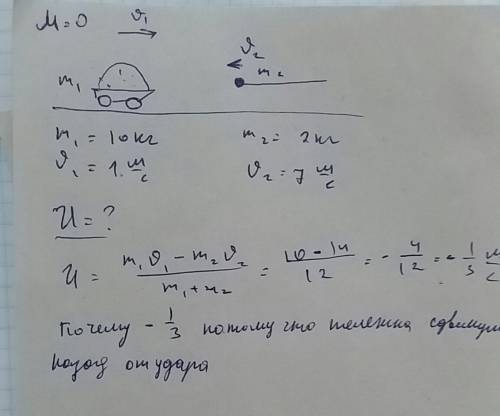 M=0 v₁
v₂
m₁ m₂
m₁ = 10 кг m₂ = 2 кг
v₁ = 1 м/с v₂ = 7 м/с
U = ?
U = (m₁v₁ - m₂v₂)/(m₁+m₂) = (10-14)/12 = -4/12 = -1/3 м/с
Почему -1/3 потому что тележка сдвинул
назад от удара